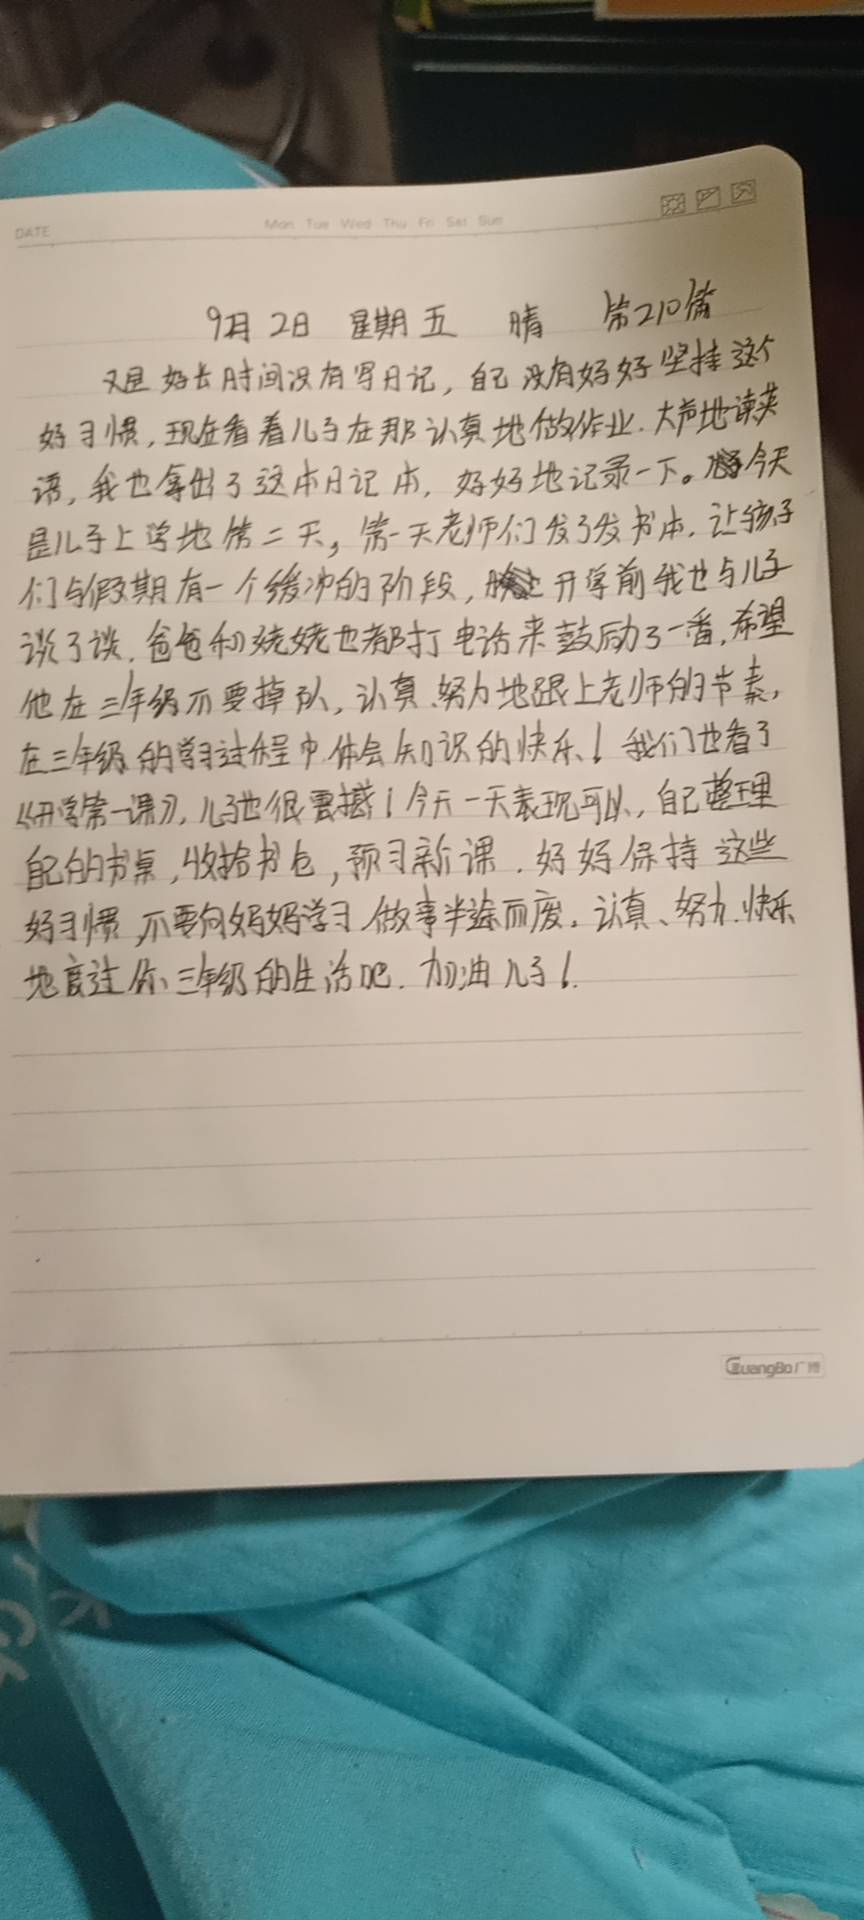 DATE
Mon Tue Wed Thu Fri Sat Sun
9月2日 星期五 晴 第210篇
又是好长时间没有写日记，自己没有好好坚持这个
好习惯，现在看着儿子在那认真地做作业．大声地读英
语，我也拿出了这本日记本，好好地记录一下。今天
是儿子上学地第二天，第一天老师们发了发书本，让孩子
们与假期有一个缓冲的阶段，开学前我也与儿子
谈了谈，爸爸和姥姥也都打电话来鼓励了一番，希望
他在三年级不要掉队，认真、努力地跟上老师的节奏，
在三年级的学习过程中体会知识的快乐！我们也看了
《开学第一课》，儿子也很震撼！今天一天表现可以，自己整理
自己的书桌，收拾书包，预习新课．好好保持这些
好习惯，不要向妈妈学习做事半途而废．认真、努力、快乐
地度过你三年级的生活吧．加油儿子！
GuangBo广博